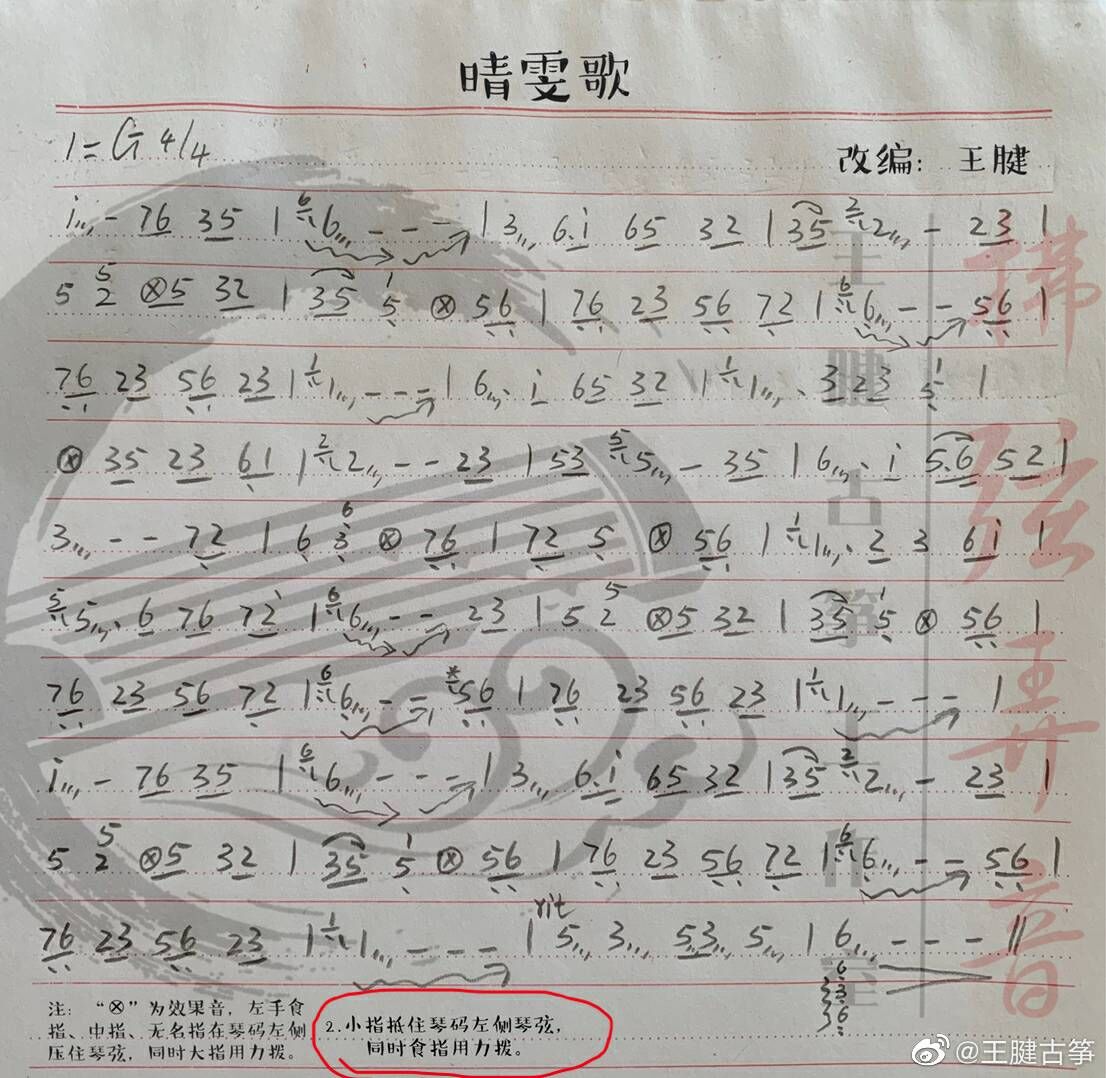 晴雯歌
1=G 4/4
改编： 王腱
i,,, - 76 35 | 6,,, - - - | 3,,, 6.i 65 32 | 35 2,,, - 23 |
5 5/2 ⊗5 32 | 35 1/5 ⊗ 56 | 76 23 56 72 | 6,,, - - 56 |
76 23 56 23 | 1,,, - - - | 6,,, . i 65 32 | 1,,, . 323 1/5 |
⊗ 35 23 61 | 2,,, - - 23 | 53 5,,, - 35 | 6,,, . i 5.6 52 |
3,,, - - 72 | 6 6/3 ⊗ 76 | 72 5 ⊗ 56 | 1,,, . 2 3 6i |
5,,, . 6 76 72 | 6,,, - - 23 | 5 5/2 ⊗5 32 | 35 1/5 ⊗ 56 |
76 23 56 72 | 6,,, - - 56 | 76 23 56 23 | 1,,, - - - |
i,,, - 76 35 | 6,,, - - - | 3,,, 6.i 65 32 | 35 2,,, - 23 |
5 5/2 ⊗5 32 | 35 1/5 ⊗ 56 | 76 23 56 72 | 6,,, - - 56 |
rit
76 23 56 23 | 1,,, - - - | 5,,, 3,,, 5,,3,,, 5,,, | 6,,, - - - ||
6
3
6
注： “⊗”为效果音，左手食
指、中指、无名指在琴码左侧
压住琴弦，同时大指用力拨。
2.小指抵住琴码左侧琴弦，
同时食指用力拨。
王腱古筝工作室
弦筝弄音
@王腱古筝